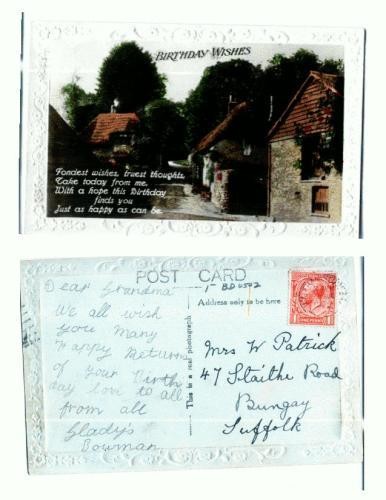 BIRTHDAY WISHES
Fondest wishes, truest thoughts,
Take today from me,
With a hope this Birthday
finds you
Just as happy as can be.
POST CARD
1- BD0502
Address only to be here
This is a real photograph
Dear Grandma
We all wish
you many
Happy Returns
of your Birth
day love to all
from all
Gladys
Bowman
ONE PENNY
Mrs W Patrick
47 Staithe Road
Bungay
Suffolk